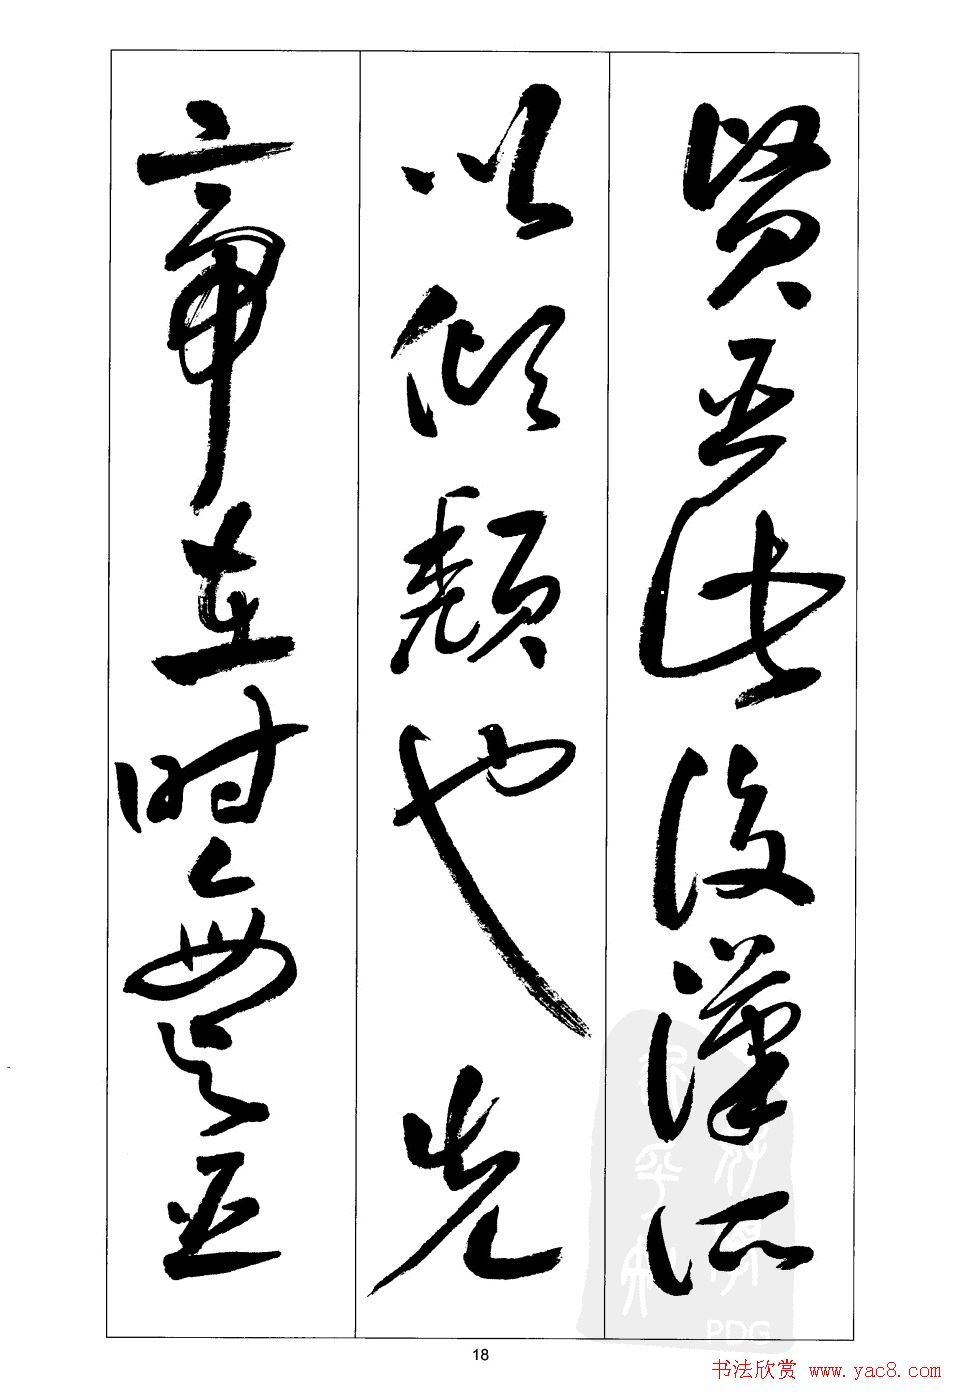 贤臣此后汉所
以倾颓也先
帝在时每与臣
18
书法欣赏 www.yac8.com
PDG